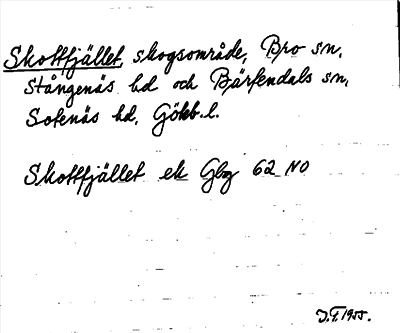 Skottfjället, skogsområde, Bro sn,
Stångenäs hd och Bärfendals sn,
Sotenäs hd, Göteb. l.
Skottfjället ek Gbg 62 NO
J.E. 1955.